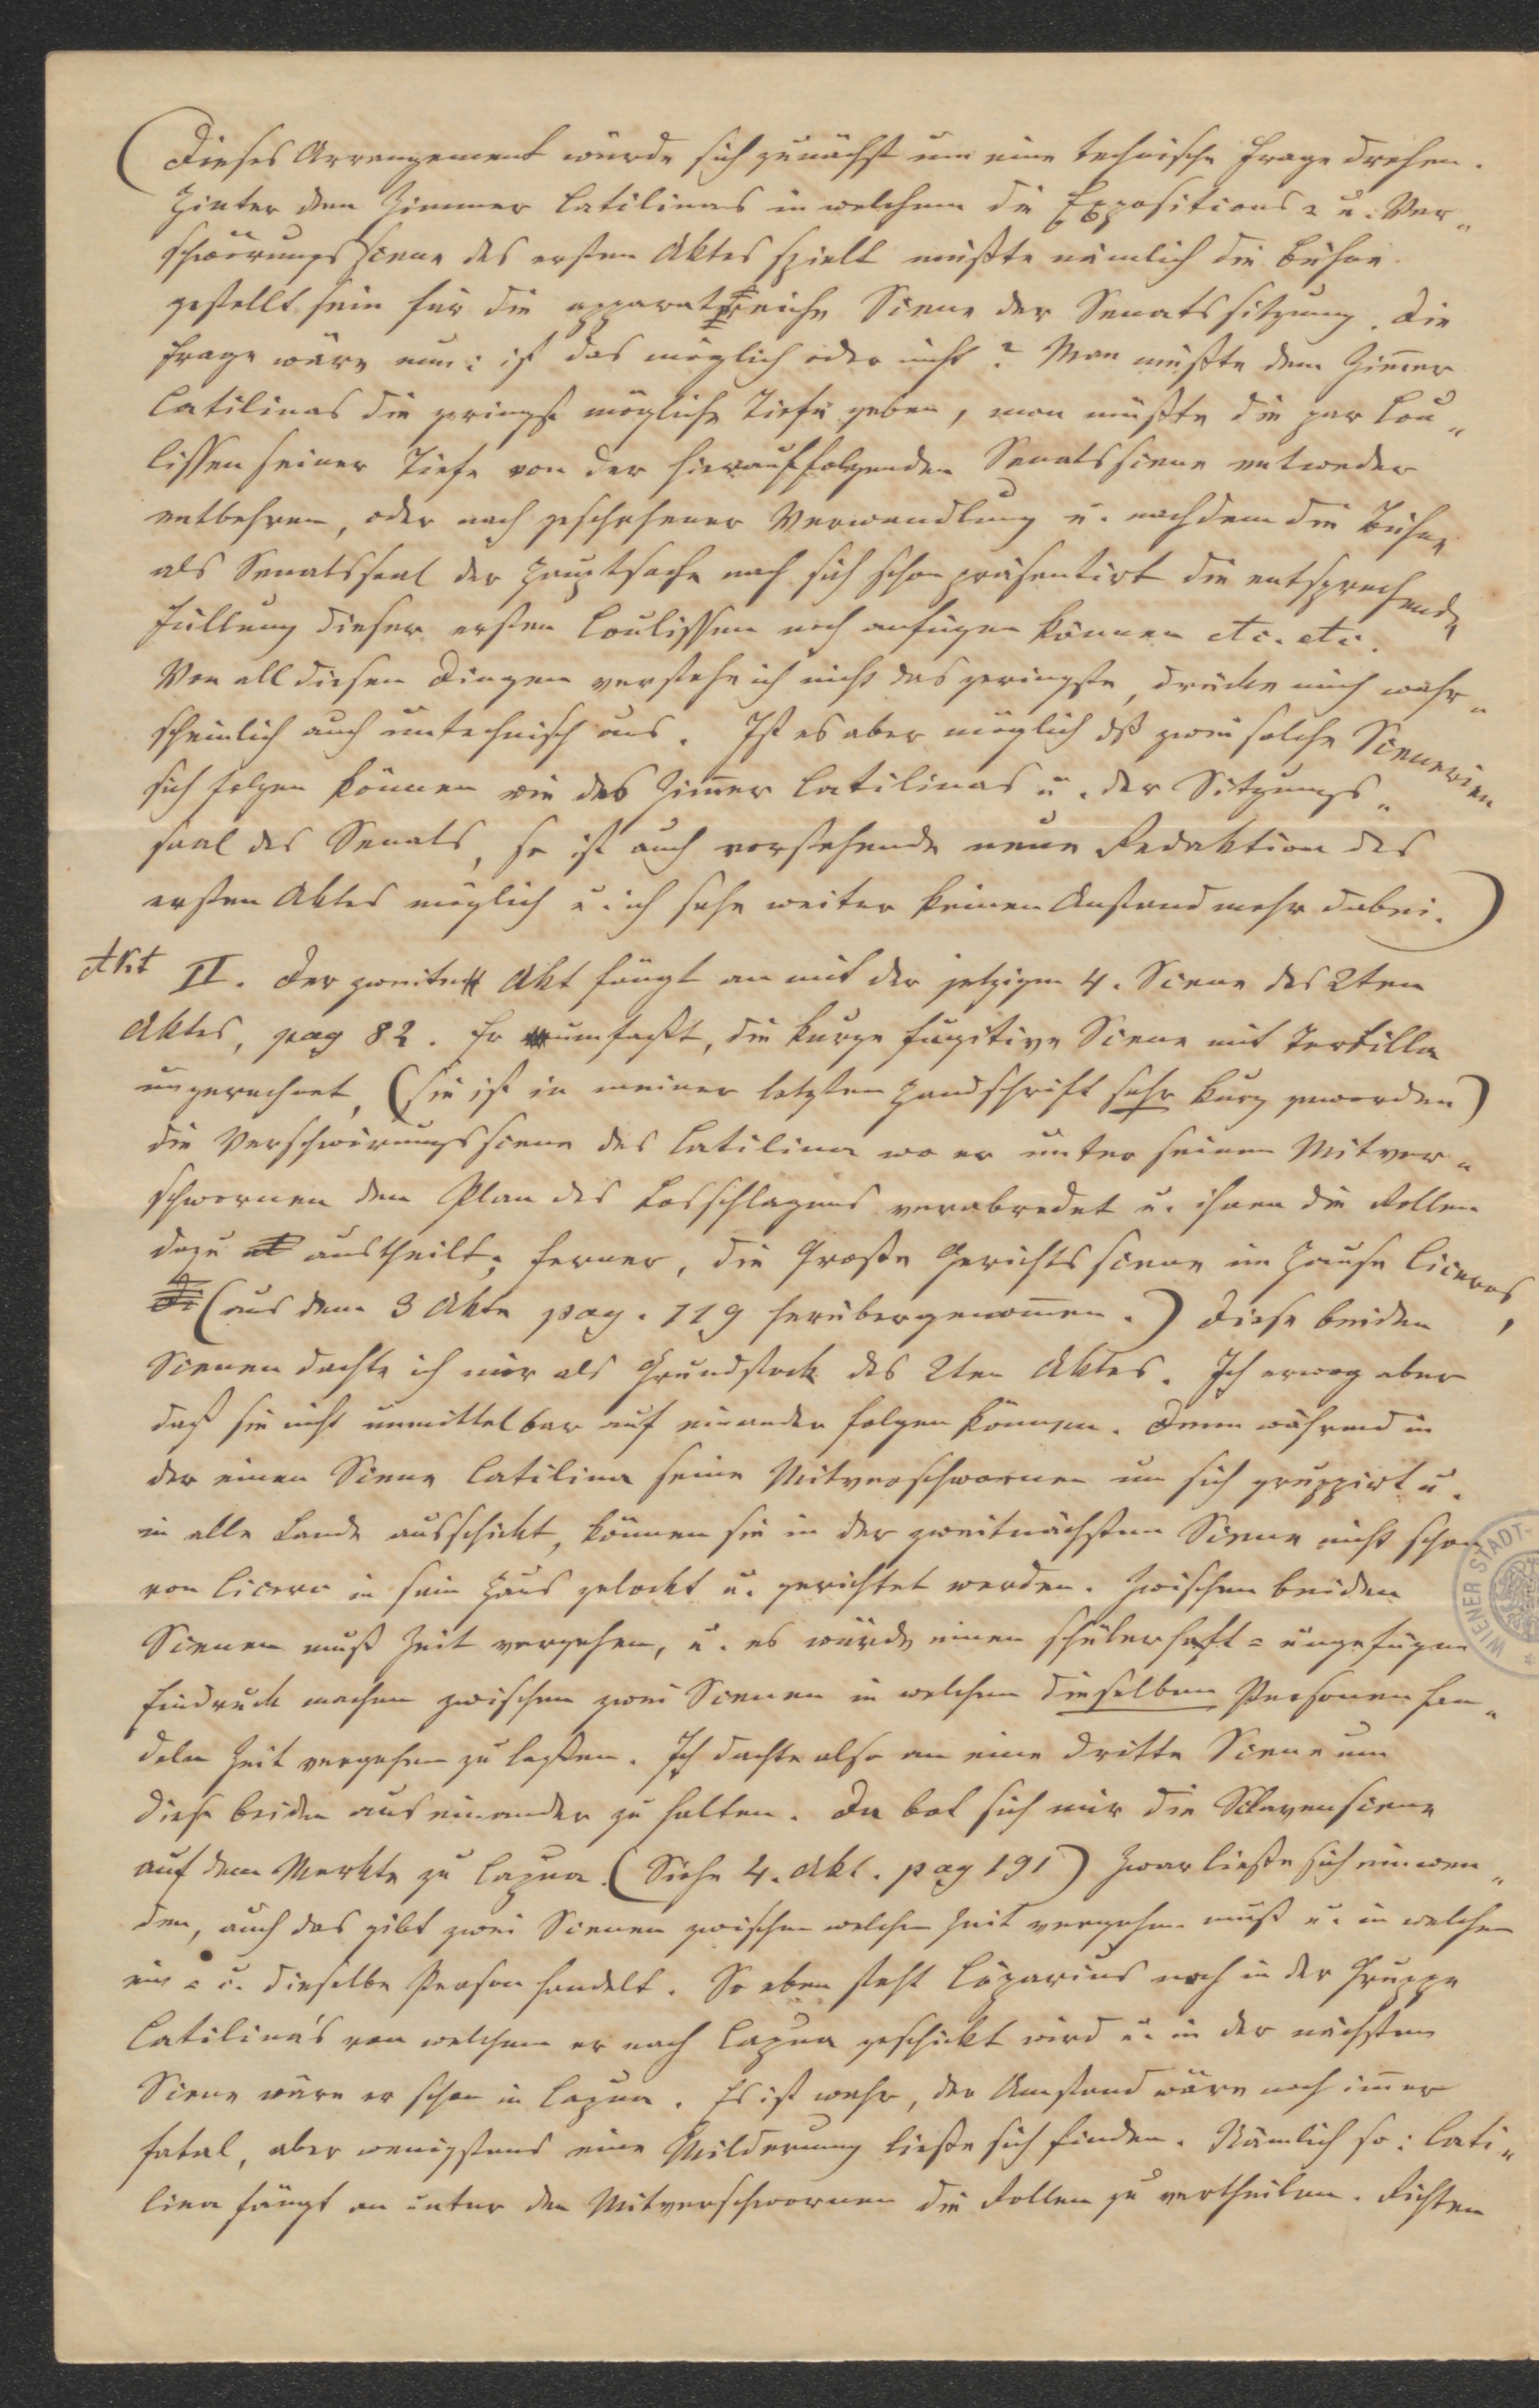 (Dieses Arrangement würde sich zunächst um eine technische Frage drehen.
Hinter dem Zimmer Catilinas in welchem die Expositions- u. Ver„
schwörungsscene des ersten Aktes spielt müßte nämlich die Bühne
gestellt sein für die apparatreiche Scene der Senatssitzung. Die
Frage wäre nun: ist das möglich oder nicht? Man müßte dem Zim̄er
Catilinas die geringst mögliche Tiefe geben, man müßte die par Cou„
lissen seiner Tiefe von der hierauffolgenden Senatsscene entweder
entbehren, oder nach geschehener Verwandlung u. nachdem die Bühne
als Senatssaal der Hauptsache nach sich schon präsentirt die entsprechende
Füllung dieser ersten Coulissen noch anfügen können etc. etc.
Von all diesen Dingen verstehe ich nicht das geringste, drücke mich wahr„
scheinlich auch untechnisch aus. Ist es aber möglich dß zwei solche Scenerien
sich folgen können wie das Zim̄er Catilinas u. der Sitzungs„
saal des Senats, so ist auch vorstehende neue Redaktion des
ersten Aktes möglich u. ich sehe weiter keinen Anstand mehr dabei.)
Akt II. Der zweite Akt fängt an mit der jetzigen 4. Scene des 2ten
Aktes, pag 82. Er umfaßt, die kurze fugitive Scene mit Tertilla
ungerechnet, (sie ist in meiner letzten Handschrift sehr kurz geworden)
die Verschwörungsscene des Catilina wo er unter seinen Mitver„
schwornen den Plan des Losschlagens verabredet u. ihnen die Rollen
dazu austheilt; ferner, die Große Gerichtsscene im Hause Ciceros,
(aus dem 3 Akte pag. 119 herübergenom̄en.) Diese beiden
Scenen dachte ich mir als Grundstock des 2ten Aktes. Ich erwog aber
daß sie nicht unmittelbar auf einander folgen können. Denn während in
der einen Scene Catilina seine Mitverschwornen um sich gruppirt u.
in alle Lande ausschickt, können sie in der zweitnächsten Scene nicht schon
von Cicero in sein Haus gelockt u. gerichtet werden. Zwischen beiden
Scenen muß Zeit vergehen, u. es würde einen schülerhaft-ungefügen
Eindruck machen zwischen zwei Scenen in welchen dieselben Personen han„
deln Zeit vergehen zu laßen. Ich dachte also an eine dritte Scene um
diese beiden auseinander zu halten. Da bot sich mir die Sclavenscene
auf dem Markte zu Capua. (Siehe 4. Akt. pag 191) Zwar ließe sich einwen„
den, auch das gibt zwei Scenen zwischen welchen Zeit vergehen muß u. in welchen
ein- u. dieselbe Person handelt. So eben steht Cäparius noch in der Gruppe
Catilina's von welchem er nach Capua geschickt wird u. in der nächsten
Scene wäre er schon in Capua. Es ist wahr, der Umstand wäre noch im̄er
fatal, aber wenigstens eine Milderung ließe sich finden. Nämlich so: Cati„
lina fängt an unter den Mitverschwornen die Rollen zu vertheilen. Richten
WIENER STADT-